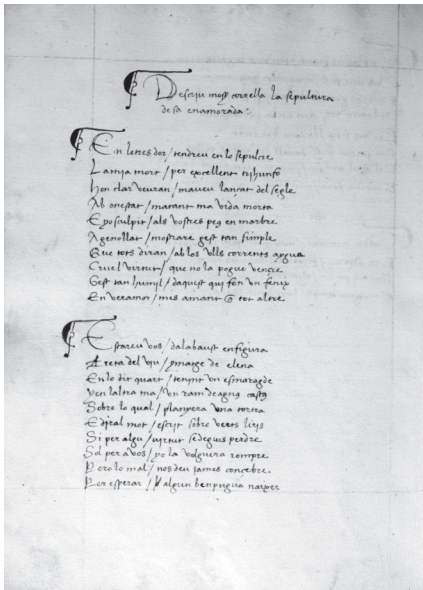 Descriu mossꝫ corella la sepultura
de sa enamorada:
En letres dor / tendreu en lo sepulcre
La mia mort / per excellent trihunfo
Hon clar veuran / maveu lançat del segle
Ab onestat / matant ma vida morta
E yo sculpit / als vostres peus en marbre
Agenollat / mostrare gest tan simple
Que tots diran / ab los ulls corrents aygua
Cruel virtut / que no la pogue vençre
Gest tan humil / daquest qui fon vn fenix
En ver amor / mes amant q̄ tot altre
Estareu vos / dalabaust en figura
Treta del viu / ymatge de elena
En lo dit quart / tenint vn esmaragde
Y en laltra ma / vn ram de agnus castus
Sobre lo qual / planyera vna tortra
E diral mot / escrit sobre verts liris
Si per algu / virtut se degues perdre
Sol per a vos / yo la volguera rompre
Pero lo mal / nos deu james concebre
Per esperar / algun be n puguia naxer